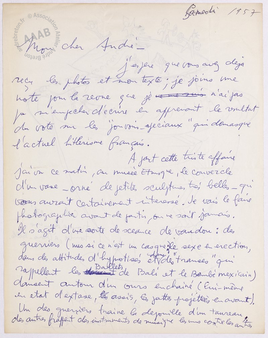 Samedi 1957
Mon cher André –
J'espère que vous avez déjà
reçu les photos et mon texte; je joins une
note pour la revue que je n'ai pas
pu m'empêcher d'écrire en apprenant le résultat
du vote sur les "pouvoirs spéciaux" qui démasque
l'actuel hitlérisme français.
A part cette triste affaire
j'ai vu ce matin, au musée Ethnogr. le couvercle
d'un vase – orné de petites sculptures très belles – qui
vous auraient certainement intéressé. Je vais le faire
photographier avant de partir, on ne sait jamais.
Il s'agit d'une sorte de séance de vaudou: des
guerriers (nus si ce n'est un casque) le sexe en érection,
dans des attitudes d'hypnotisés et de "transes" qui
rappellent les Ballets de Bali et le Bembé mexicain)
dansent autour d'un ours enchaîné (lui-même
en état d'extase, les assis, les pattes projetées en avant).
Un des guerriers traîne la dépouille d'un taureau,
des autres frappent des instruments de musique les uns contre les autres